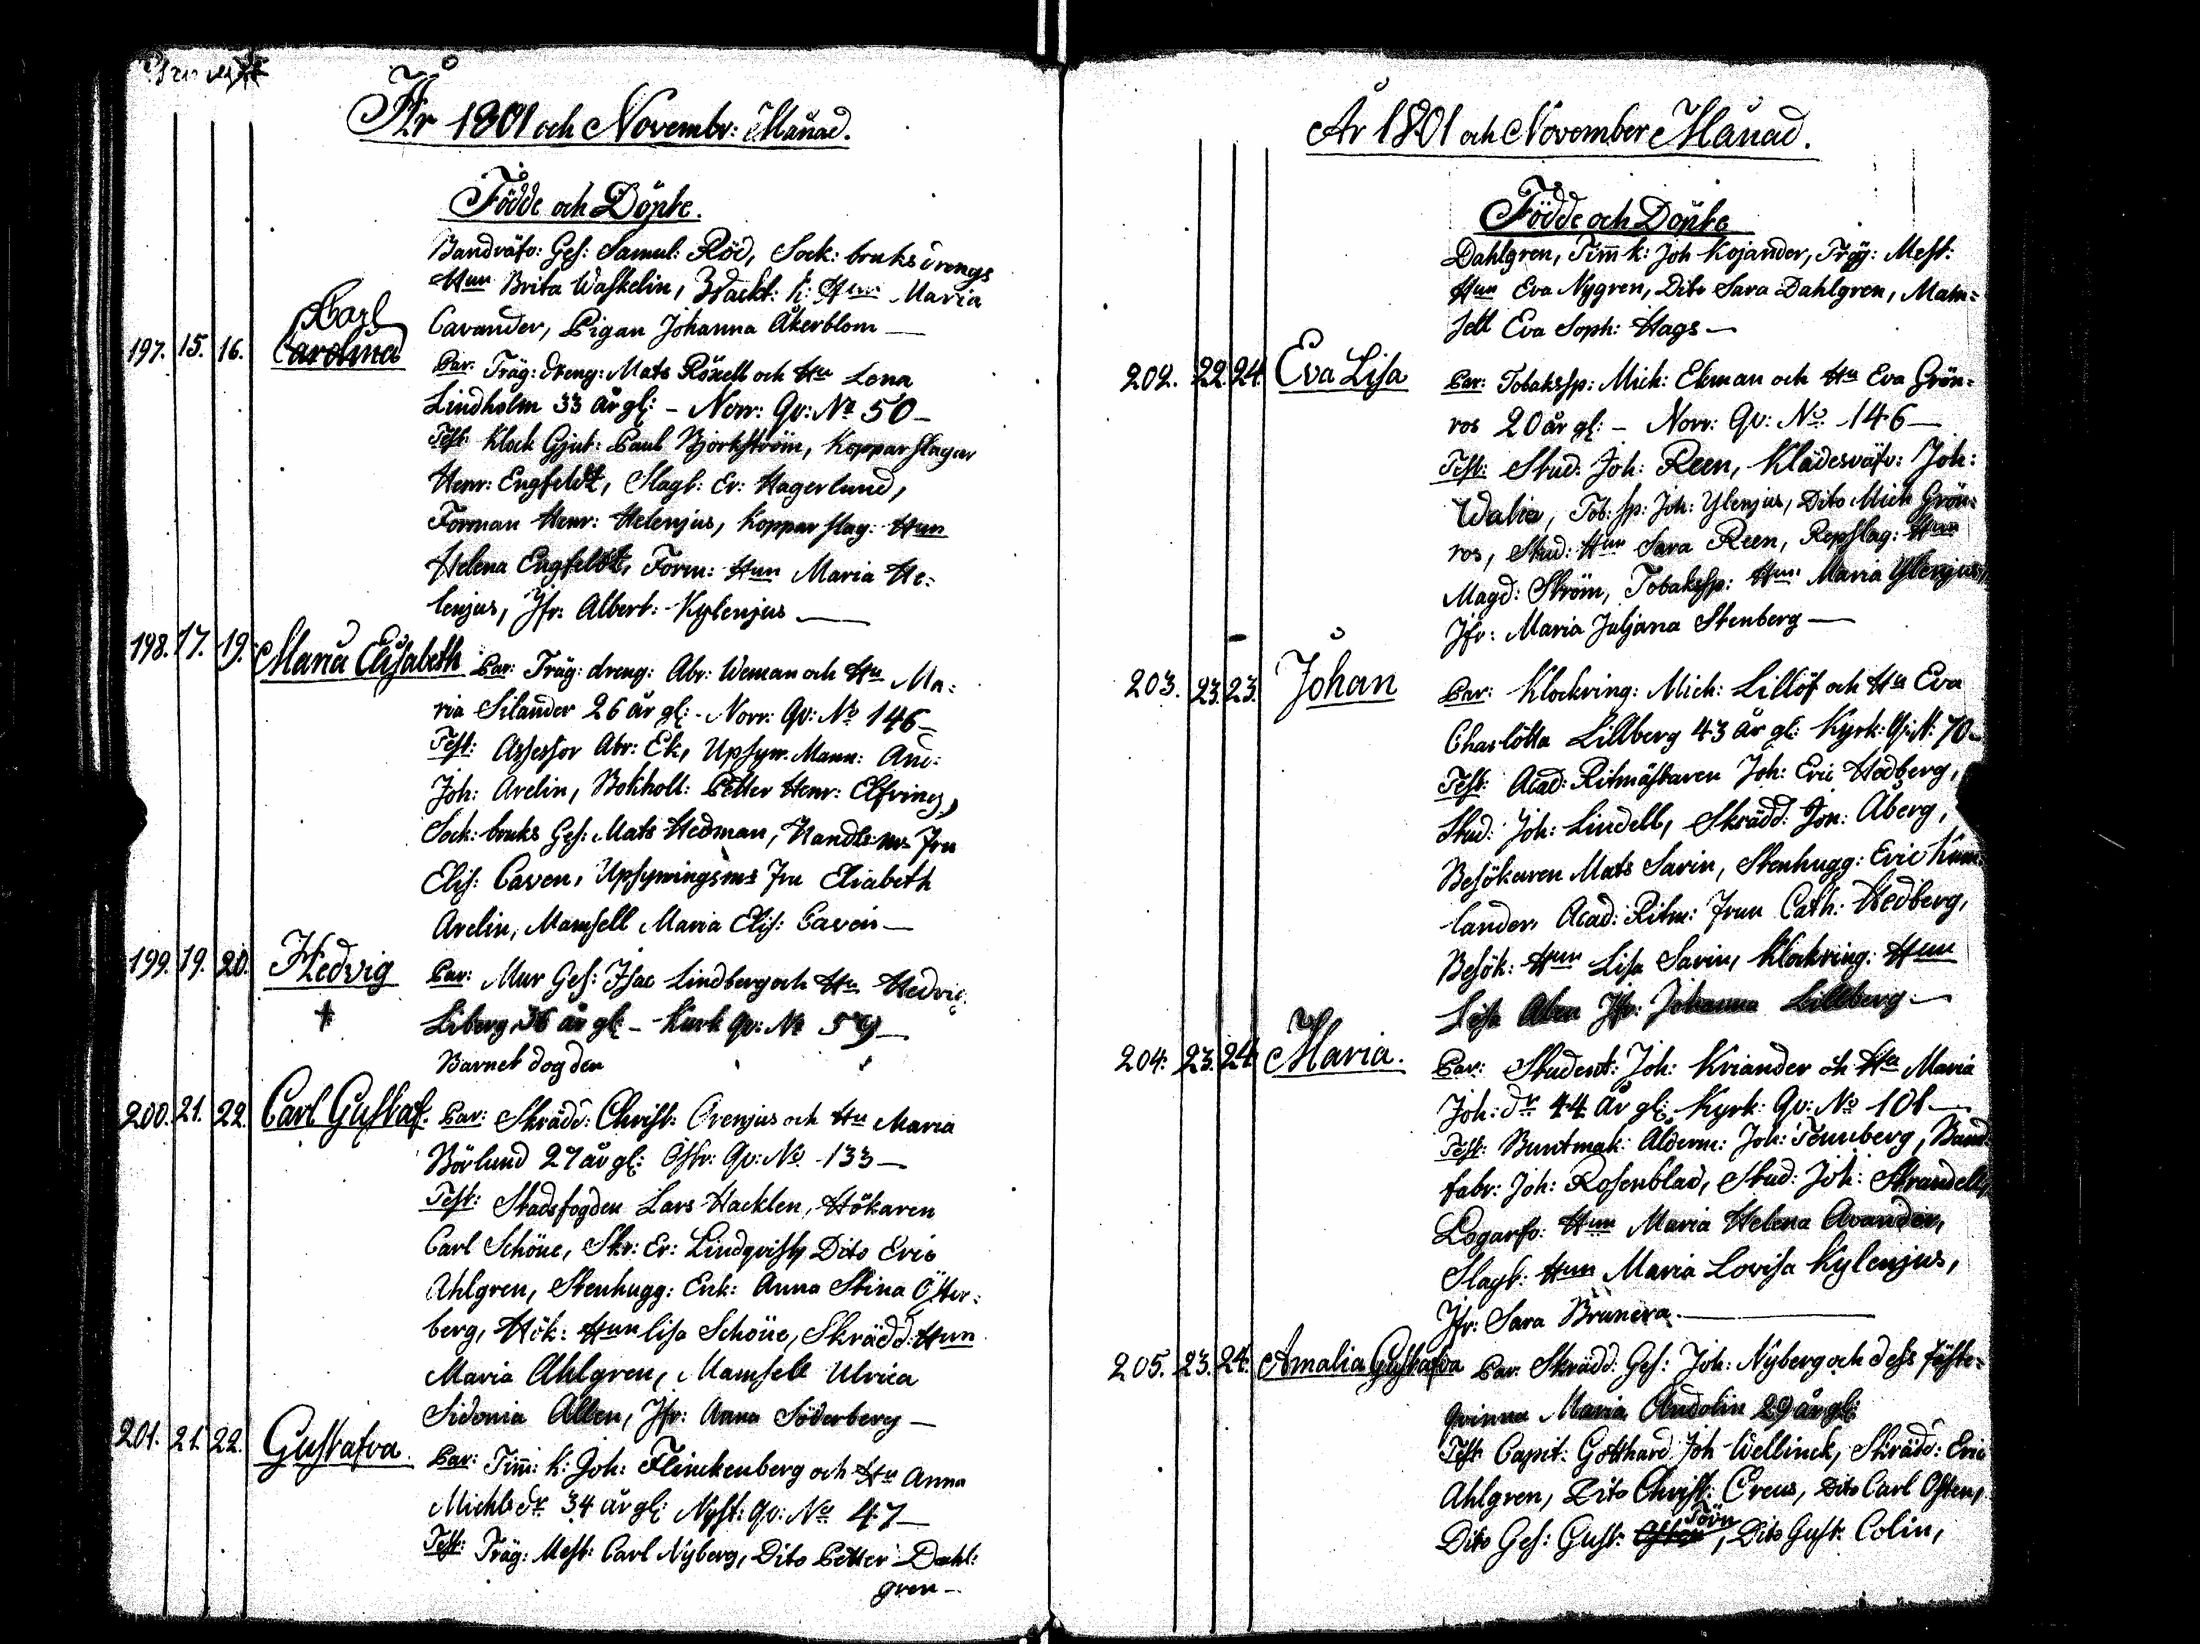 År 1801 och Novembr: Månad.
Födde och Döpte.
Bandväfv: Ges: Samul: Röd, Sock: bruks drengs
Hun Brita Waskelin, Wackt: k: Hun Maria
Cavander, Pigan Johanna Åkerblom —
197. 15. 16. Carl Carolina Par: Träg: dreng: Mats Röxell och Hu Lena
Lindholm 33 år gl: – Norr: Qv: No 50 –
Test: Klock Gjut: Paul Björkström, Kopparslagar
Henr: Engfeldt, Slagt: Er: Hagerlund,
Forman Henr: Helenjus, Kopparslag: Hun
Helena Engfeldt, Form: Hun Maria He:
lenjus, Jfr: Albert: Kylenjus —
198. 17. 19. Maria Elisabeth Par: Träg: dreng: Abr: Weman och Hu Ma:
ria Silander 26 år gl: - Norr: Qv: No 146 –
Test: Assessor Abr: Ek, Upsyn: Mann: And:
Joh: Arelin, Bokholl: Petter Henr: Elfving,
Sock: bruks Ges: Mats Hedman, Handls:ms Fru
Elis: Caven, Upsyningsms Fru Eliabeth
Arelin, Mamsell Maria Elis: Caven —
199. 19. 20. Hedvig Par: Mur Ges: Isac Lindberg och Hu Hedvig
Liberg 36 år gl: – Kyrk Qv: No 59 —
Barnet dog den
200. 21. 22. Carl Gustaf. Par: Skrädd: Christ: Orenjus och Hu Maria
Börlund 27 år gl: Östr: Qv: No 133 —
Test: Stadsfogden Lars Hacklen, Hökaren
Carl Schöue, Skr: Er: Lindqvist, Dito Eric
Ahlgren, Stenhugg: Enk: Anna Stina Öster:
berg, Hök: Hun Lisa Schöue, Skrädd: Hun
Maria Ahlgren, Mamsell Ulrica
Sidonia Allen, Jfr: Anna Söderberg —
201. 21. 22. Gustafva. Par: Tim: k: Joh: Flinckenberg och Hu Anna
Michls dr 34 år gl: Nyst: Qv: No 47 —
Test: Träg: Mest: Carl Nyberg, Dito Petter Dahl:
gren —
År 1801 och November Månad.
Födde och Döpte
Dahlgren, Timk: Joh Kojander, Träg: Mest:
Hun Eva Nygren, Dito Sara Dahlgren, Mam=
sell Eva Soph: Hags —
202. 22. 24. Eva Lisa Par: Tobakssp: Mich: Ekman och Hu Eva Grön=
ros 20 år gl: – Norr: Qv: No 146 —
Test: Stud: Joh: Reen, Klädesväfv: Joh:
Walin, Tob: sp: Joh: Ylenjus, Dito Mich Grön=
ros, Stud: Hun Sara Reen, Repslag: Hun
Magd: Ström, Tobakssp: Hun Maria Ylenjus,
Jfr: Maria Juljana Stenberg —
203. 23. 23. Johan Par: Klockring: Mich: Lillöf och Hu Eva
Charlotta Lillberg 43 år gl: Kyrk: Qv: N: 70 –
Test: Acad: Ritmästaren Joh: Eric Hedberg,
Stud: Joh: Lindell, Skrädd: Jon: Åberg,
Besökaren Mats Sarin, Stenhugg: Eric Kum=
lander, Acad: Ritm: Fruu Cath: Hedberg,
Besök: Hun Lisa Sarin, Klockring: Hun
Lisa Alen Jfr: Johanna Lillberg —
204. 23. 24. Maria. Par: Student: Joh: Kriander och Hu Maria
Joh: dr 44 år gl: Kyrk: Qv: No 101 —
Test: Buntmak: Ålderm: Joh: Tennberg, Band
fabr: Joh: Rosenblad, Stud: Joh: Strandell,
Logarfv: Hun Maria Helena Avander,
Slagt: Hun Maria Lovisa Kylenjus,
Jfr: Sara Brunera. —
205. 23. 24. Amalia Gustafva Par: Skrädd: Ges: Joh: Nyberg och dess fäste=
qvinna Maria Andolin 29 år gl:
Test: Capit: Gotthard Joh Wellinck, Skrädd: Eric
Ahlgren, Dito Christ: Creus, Dito Carl Osten,
Dito Ges: Gust: Törn, Dito Gust: Colin,